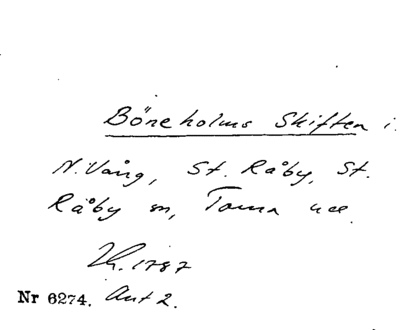 Böneholms Skiften i
N. Vång, St. Råby, St.
Råby sn, Torna
Lh. 1787
Nr 6274. Akt 2.